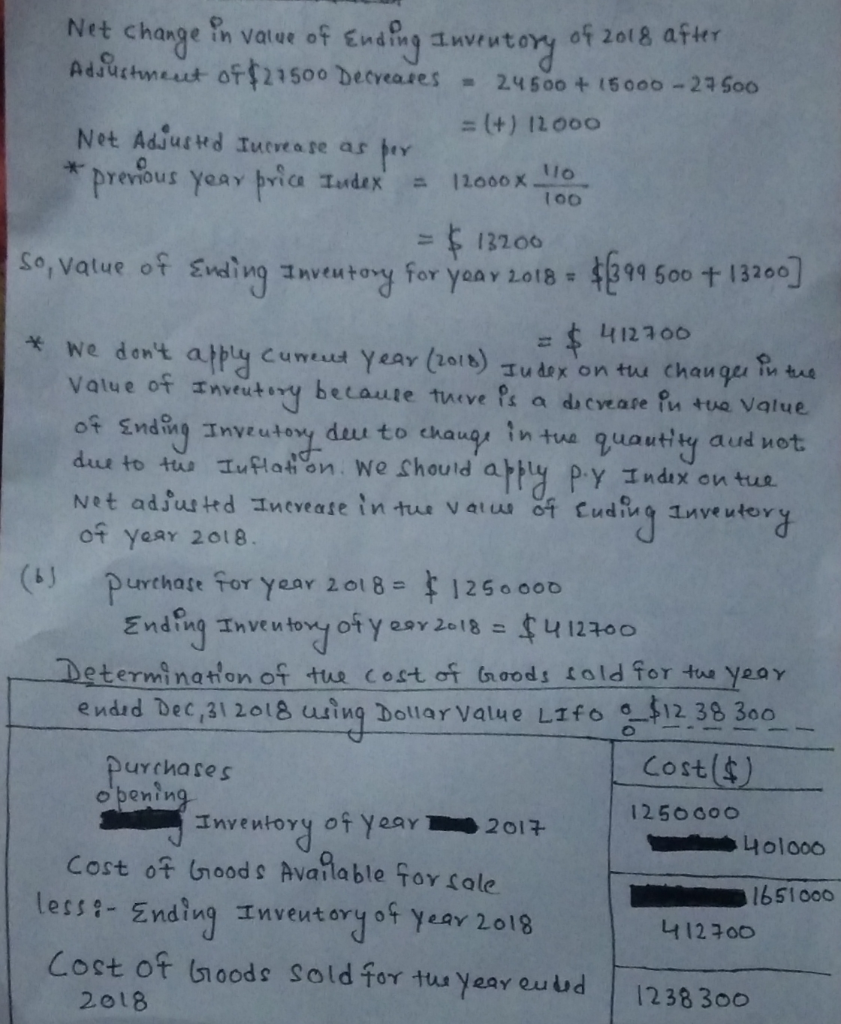 Net change in value of Ending Inventory of 2018 after
Adjustment of $27500 Decreases = 24500 + 15000 - 27500
= (+) 12000
Net Adjusted Increase as per
* previous year price Index = 12000 x 110/100
= $ 13200
So, value of Ending Inventory for year 2018 = $[399500 + 13200]
= $ 412700
* We don't apply current year (2018) Index on the changes in the
value of Inventory because there is a decrease in the value
of Ending Inventory due to change in the quantity and not
due to the Inflation. We should apply P.Y Index on the
Net adjusted Increase in the value of Ending Inventory
of year 2018.
(b) purchase for year 2018 = $ 1250000
Ending Inventory of year 2018 = $412700
Determination of the cost of Goods sold for the year
ended Dec, 31 2018 using Dollar Value LIfo : $1238300
Cost($)
purchases 1250000
opening
Inventory of year 2017 401000
Cost of Goods Available for sale 1651000
less:- Ending Inventory of year 2018 412700
Cost of Goods sold for the year ended
2018 1238300